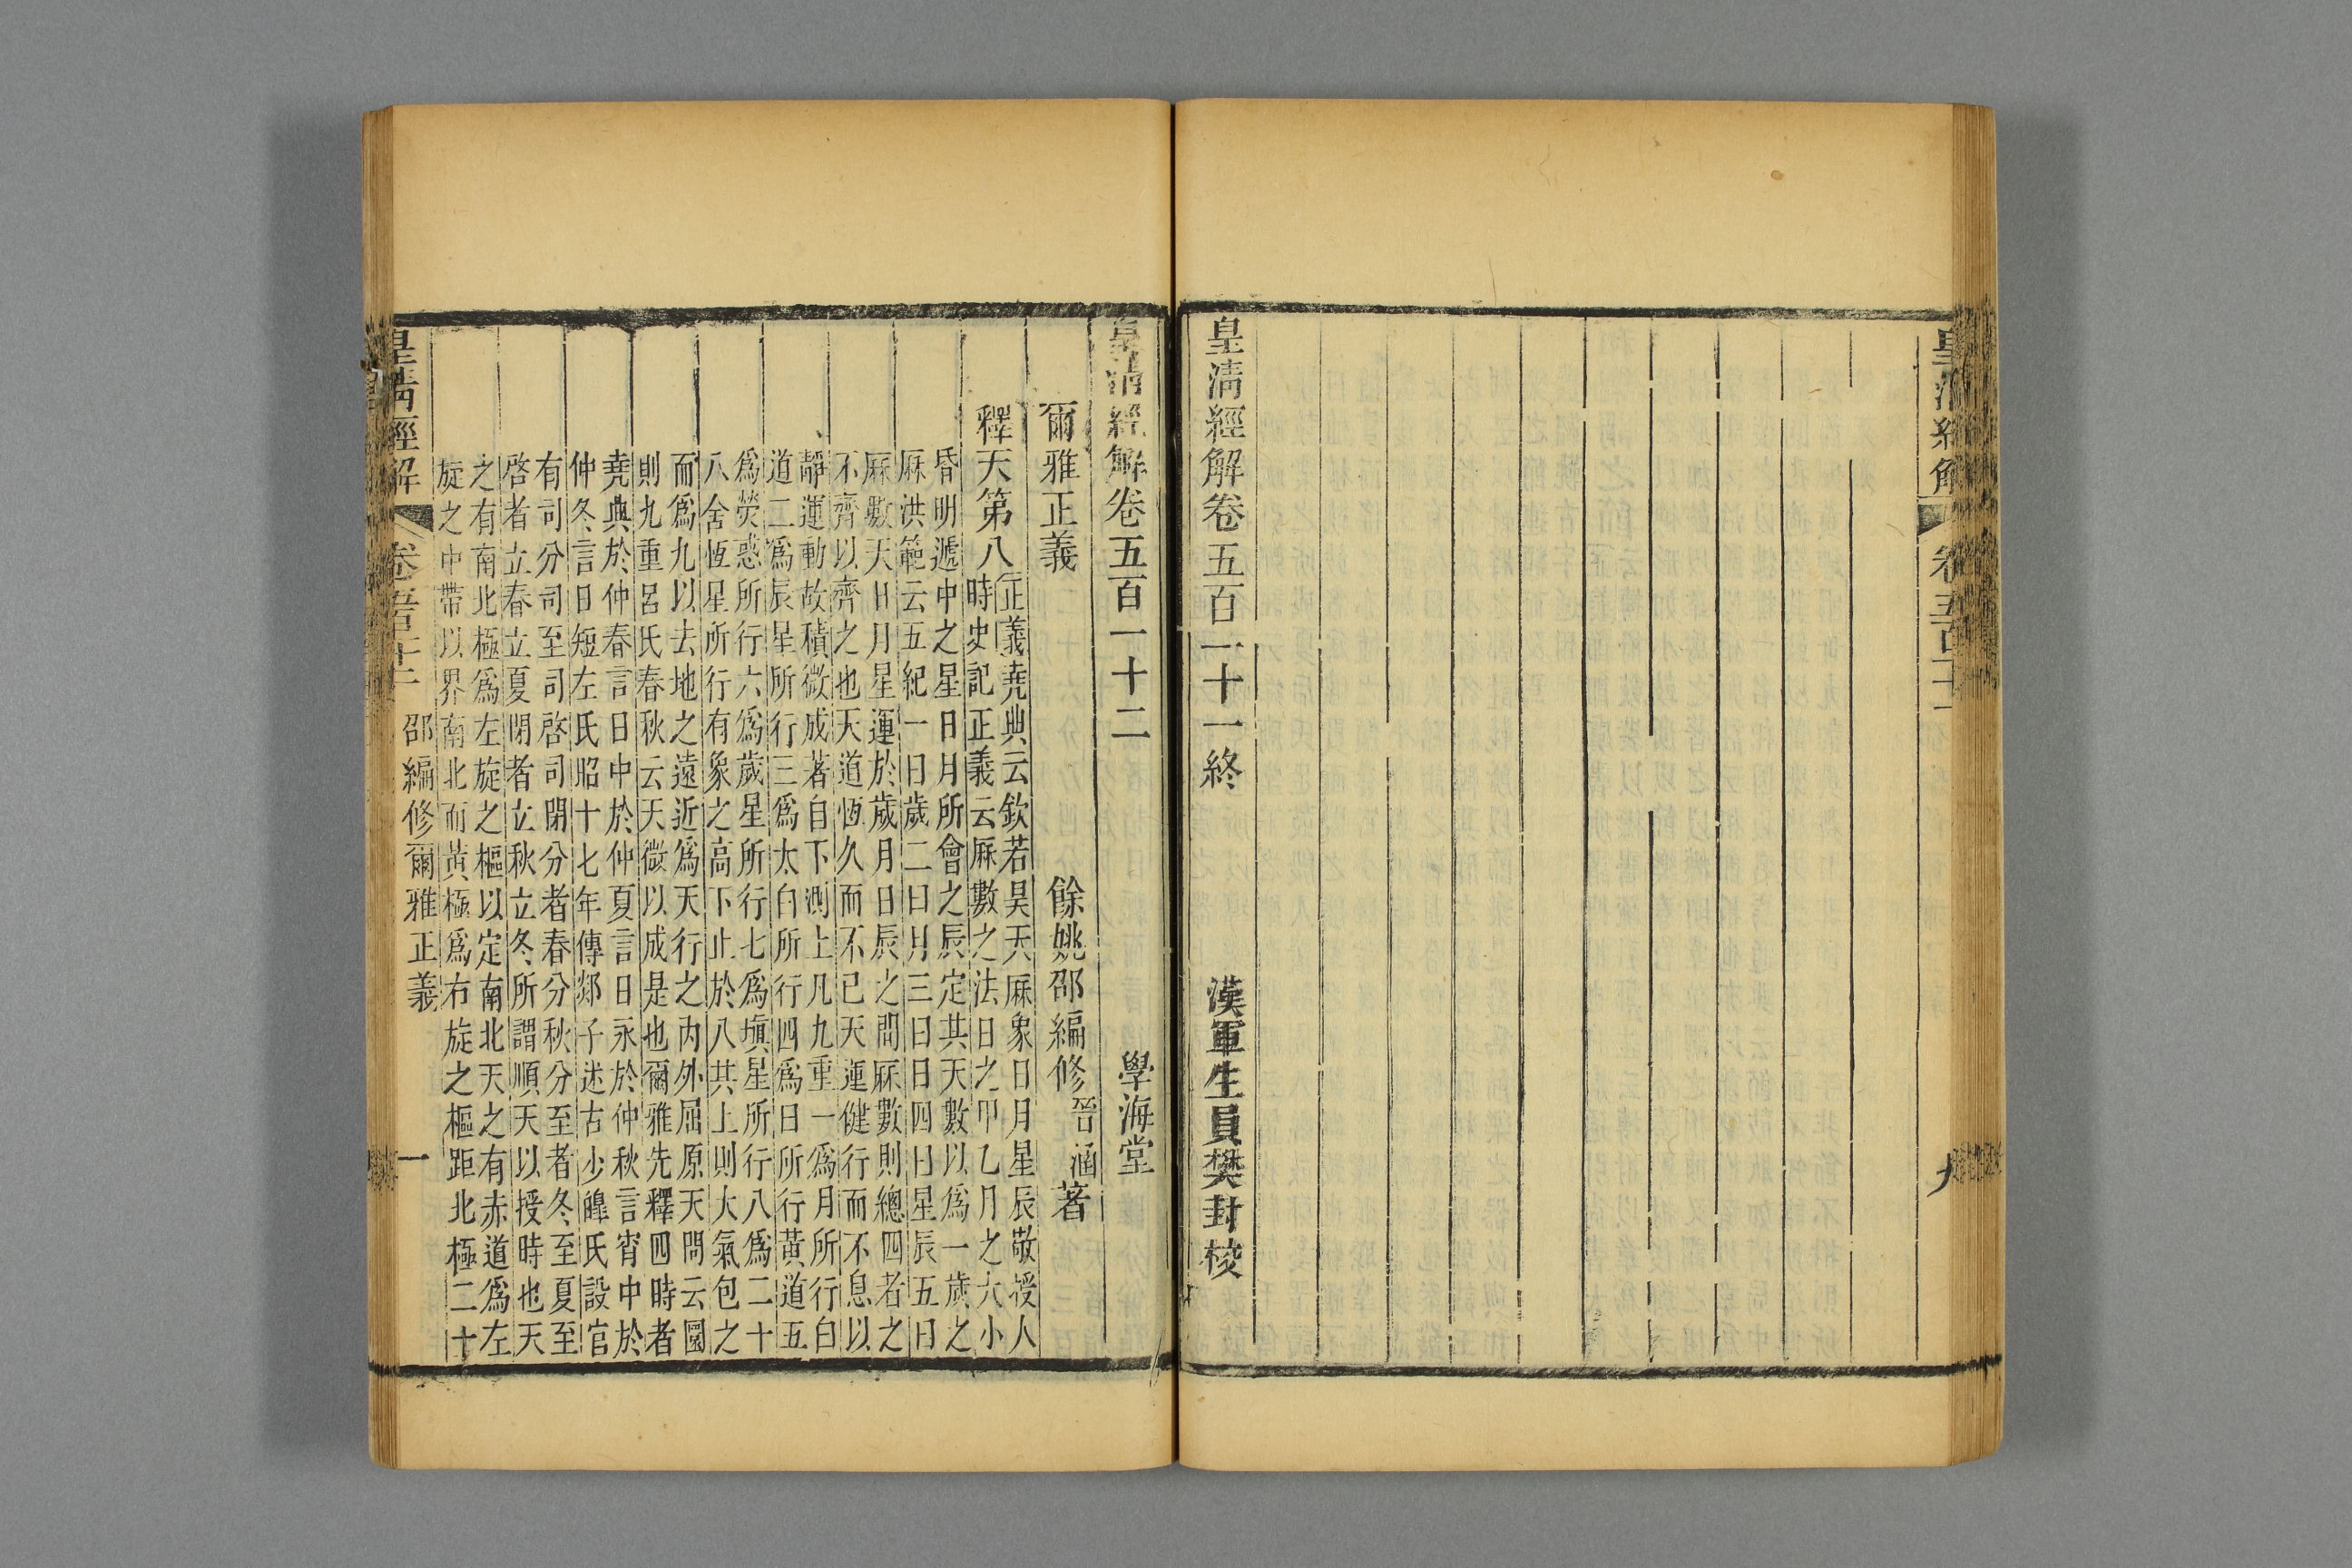 皇清經解卷五百一十一終
漢軍生員樊封校
皇清經解卷五百一十二
學海堂
爾雅正義
餘姚邵編修晉涵著
釋天第八
正義堯典云欽若昊天厤象日月星辰敬授人
時史記正義云厤數之法日之甲乙月之大小
昏明遞中之星日月所會之辰定其天數以爲一歲之
厤洪範云五紀一曰歲二曰月三曰日四曰星辰五曰
厤數天日月星運於歲月日辰之間厤數則總四者之
不齊以齊之也天道恆久而不已天運健行而不息以
靜運動故積微成著自下測上凡九重一爲月所行白
道二爲辰星所行三爲太白所行四爲日所行黃道五
爲熒惑所行六爲歲星所行七爲塡星所行八爲二十
八舍恆星所行有象之高下止於八共上則大氣包之
而爲九以去地之遠近爲天行之內外屈原天問云圜
則九重呂氏春秋云天微以成是也爾雅先釋四時者
堯典於仲春言日中於仲夏言日永於仲秋言宵中於
仲冬言日短左氏昭十七年傳郯子述古少皥氏設官
有司分司至司啓司閉分者春分秋分至者冬至夏至
啓者立春立夏閉者立秋立冬所謂順天以授時也天
之有南北極爲左旋之樞以定南北天之有赤道爲左
旋之中帶以界南北而黃極爲右旋之樞距北極二十
皇清經解
卷五百十二
邵編修爾雅正義
一